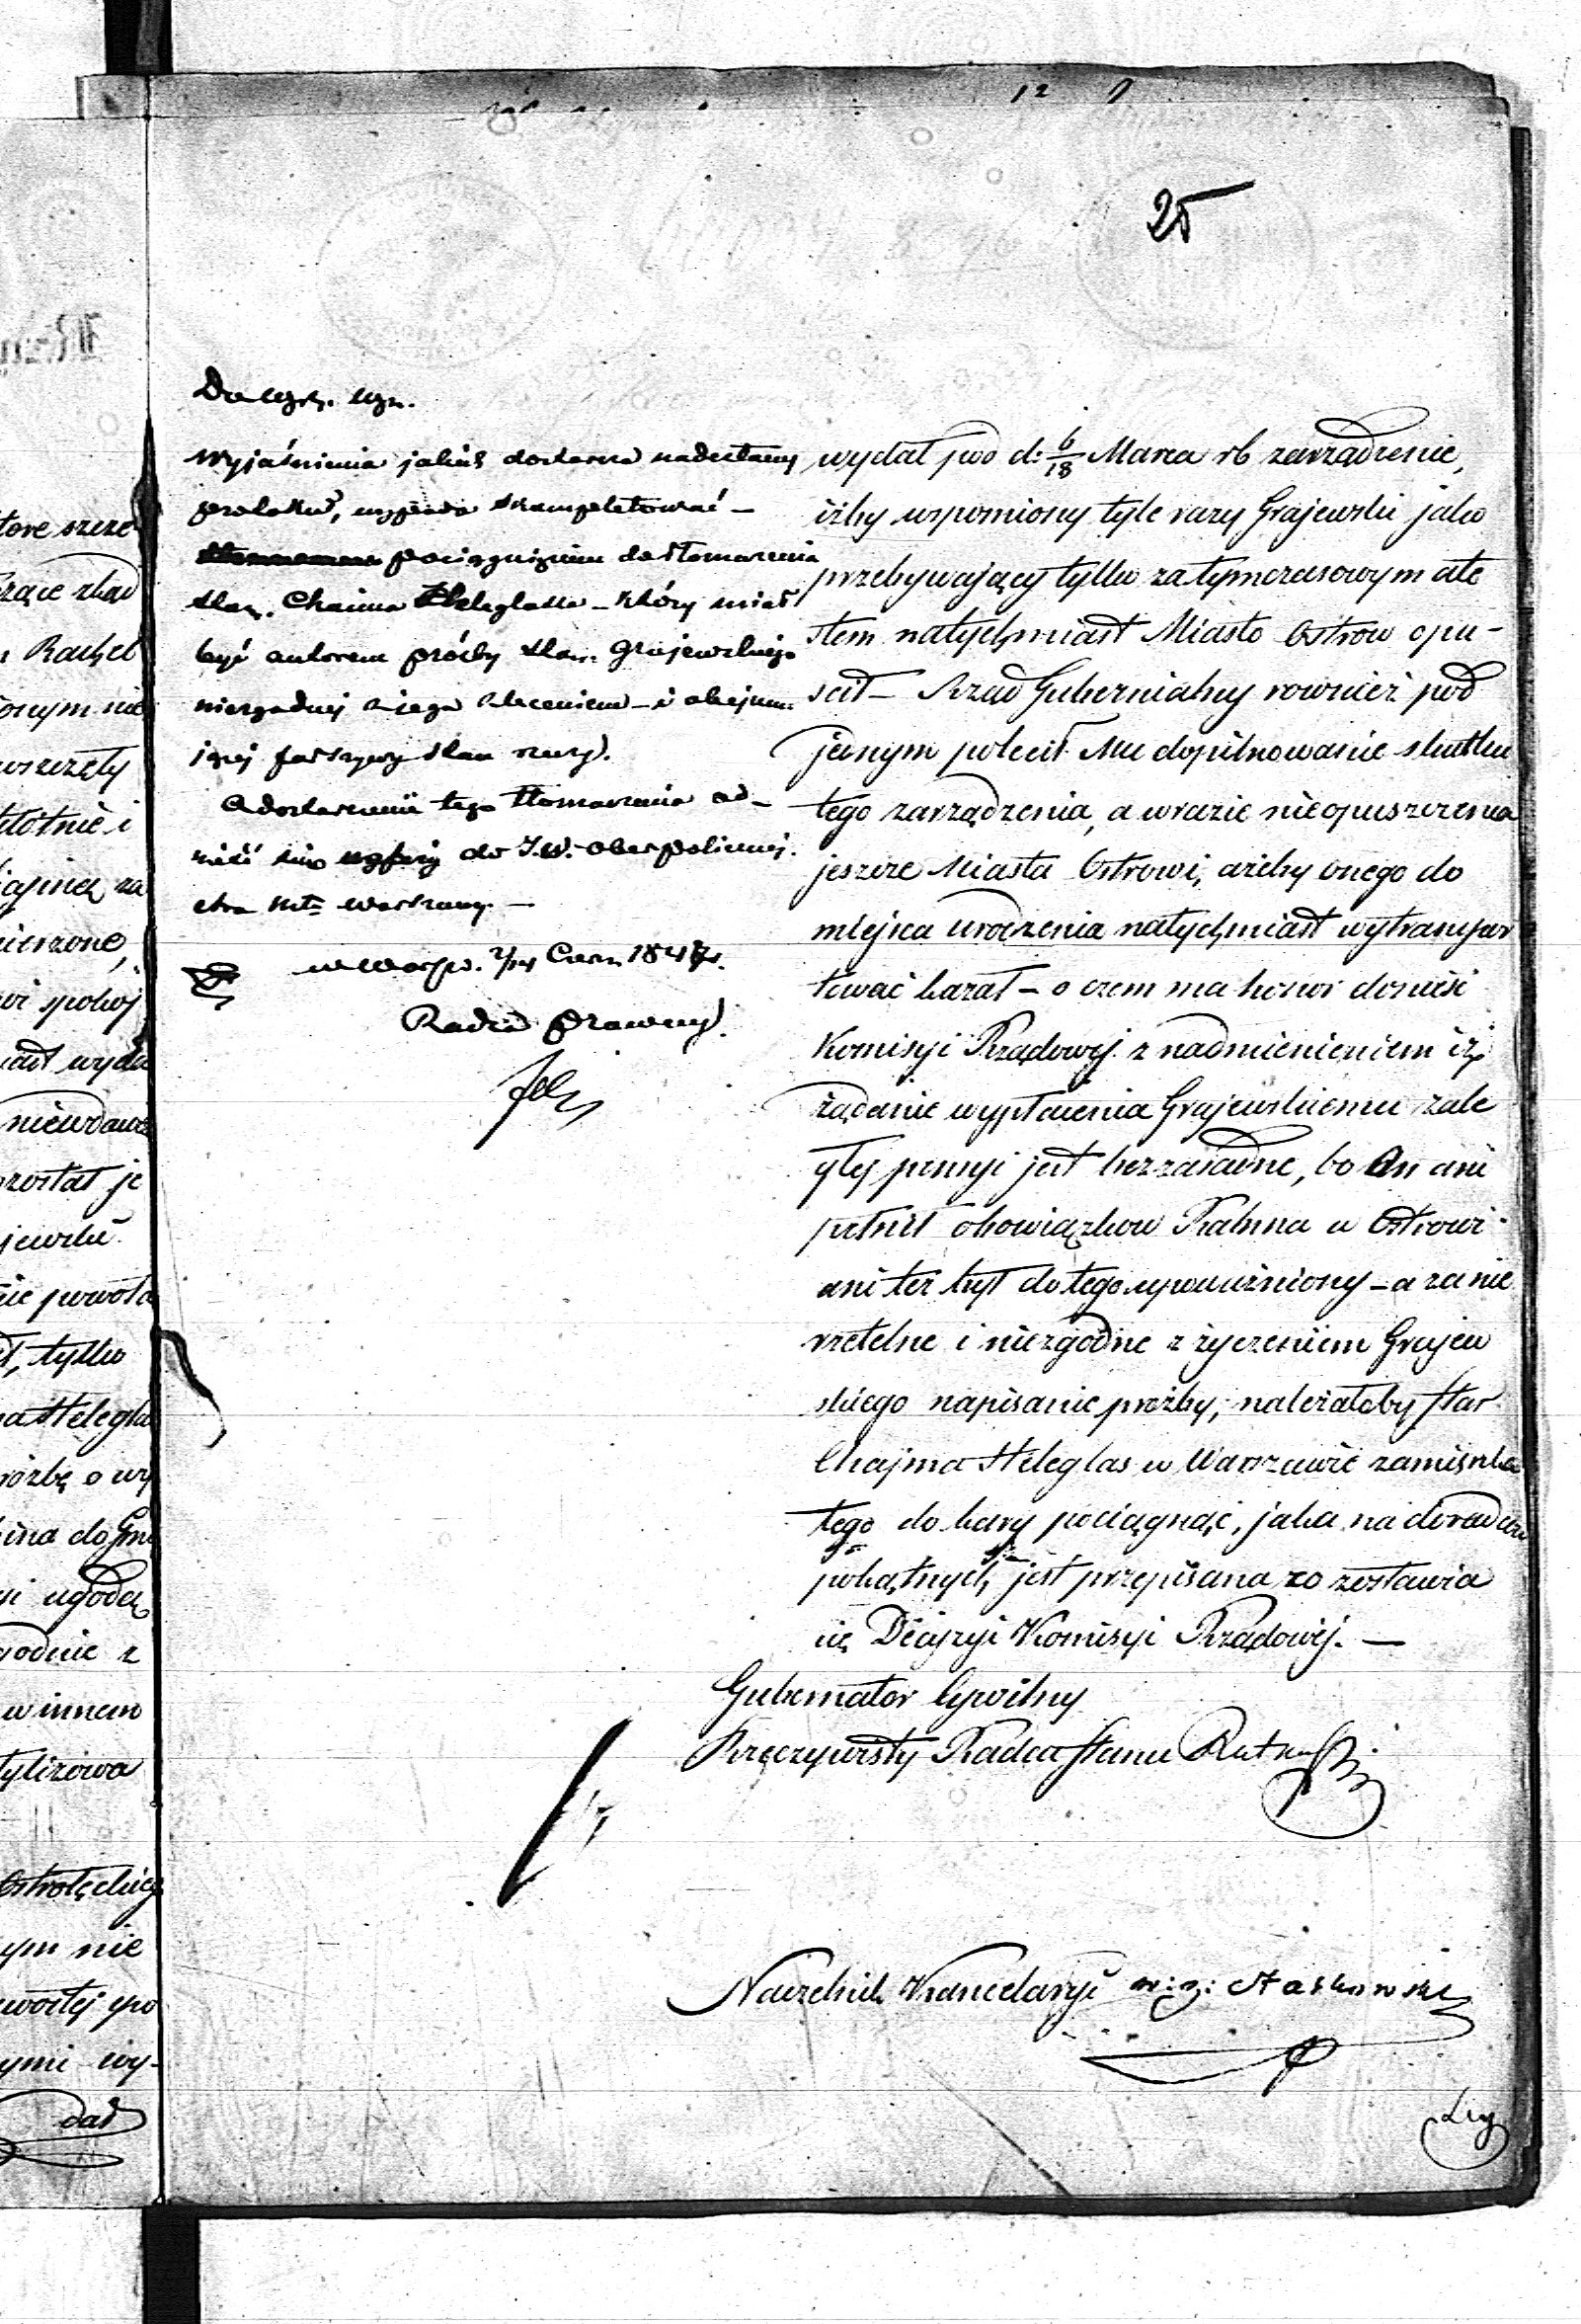 25
Do Wydz. Wyzn.
Wyjaśnienia jakich dostarcza nadesłany
protokuł, wypada skompletować –
pociągnięciem do tłomaczenia
star. Chaima Steleglassa – który miał
być autorem próśby star. Grajewskiego
niezgodnej z jego zleceniem – i obejmu-
jącej fałszywy stan rzeczy.
O dostarczenie tego tłomaczenia od-
nieść się wypada do J.W. Oberpolicmaj-
stra Mta Warszawy. –
w Warszw. 2/14 Czerw. 1847 r.
Radca Prawny
wydał pod d: 6/18 Marca rb zarządzenie,
iżby wspomiony tyle razy Grajewski jako
przebywający tylko za tymczasowym ate
stem natychmiast Miasto Ostrow opu-
scił – Rząd Gubernialny rownież pod
jednym polecił Mu dopilnowanie skutku
tego zarządzenia, a wrazie nieopuszczenia
jeszcze Miasta Ostrowi, ażeby onego do
miejsca urodzenia natychmiast wytranspor
tować kazał – o czem ma honor donieść
Komisyi Rządowej z nadmienieniem iż
żądanie wypłacenia Grajewskiemu zale
głej pensyi jest bezzasadne, bo On ani
pełnił obowiązkow Rabina w Ostrowi
ani też był do tego upoważniony – a za nie
rzetelne i niezgodne z życzeniem Grajew
skiego napisanie proźby, należałoby Star
Chajma Steleglas w Warszawie zamieszka
tego do kary pociągnąć, jaka na doradców
pokątnych jest przepisana co zostawia
się Decyzyi Komisyi Rządowej. –
Gubernator Cywilny
Rzeczywisty Radca Stanu
Naczelnik Kancelaryi w: z: Staskowski
tore szcze
Rachel
onym nie
wszczęty
aginą za
ierzone,
wi spokoj
iast wyda
niewdawa
został je
jewski
ie powoła
ł, tylko
a Stelegla
roźbę o wy
ina do Gmi
i ugodą
godnie z
w innem
tylizowa
Ostrołęckieg
ym nie
ymi wy-
dał